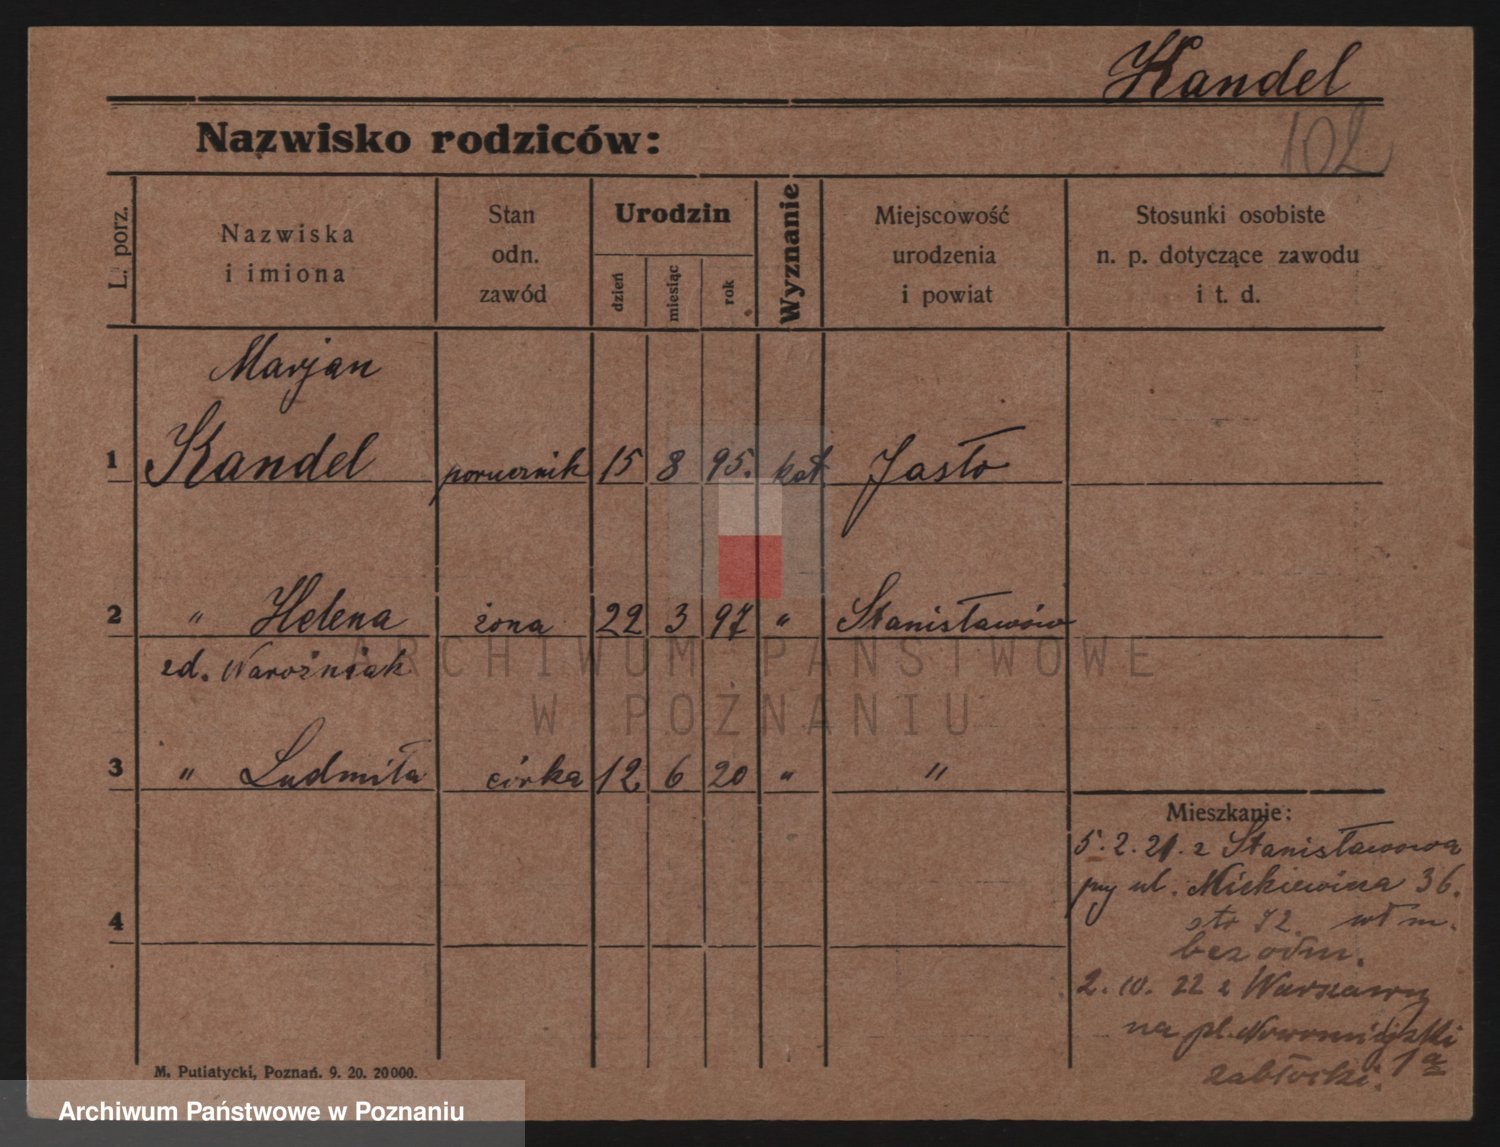 Kandel
102
Nazwisko rodziców:
L. porz.
Nazwiska
i imiona
Stan
odn.
zawód
Urodzin
dzień
miesiąc
rok
Wyznanie
Miejscowość
urodzenia
i powiat
Stosunki osobiste
n. p. dotyczące zawodu
i t. d.
Marjan
1 Kandel porucznik 15 8 95. kat Jasło
2 " Helena żona 22 3 97 " Stanisławów
zd. Waroźniak
3 " Ludmiła córka 12 6 20 " "
4
Mieszkanie:
5.2.21. z Stanisławowa
przy ul. Mickiewicza 36.
72. wł m.
bez odm.
2.10.22 z Warszawy
na pl. Nowomiejski
1a
Zabłocki.
M. Putiatycki, Poznań. 9. 20. 20000.
ARCHIWUM PAŃSTWOWE
W POZNANIU
Archiwum Państwowe w Poznaniu